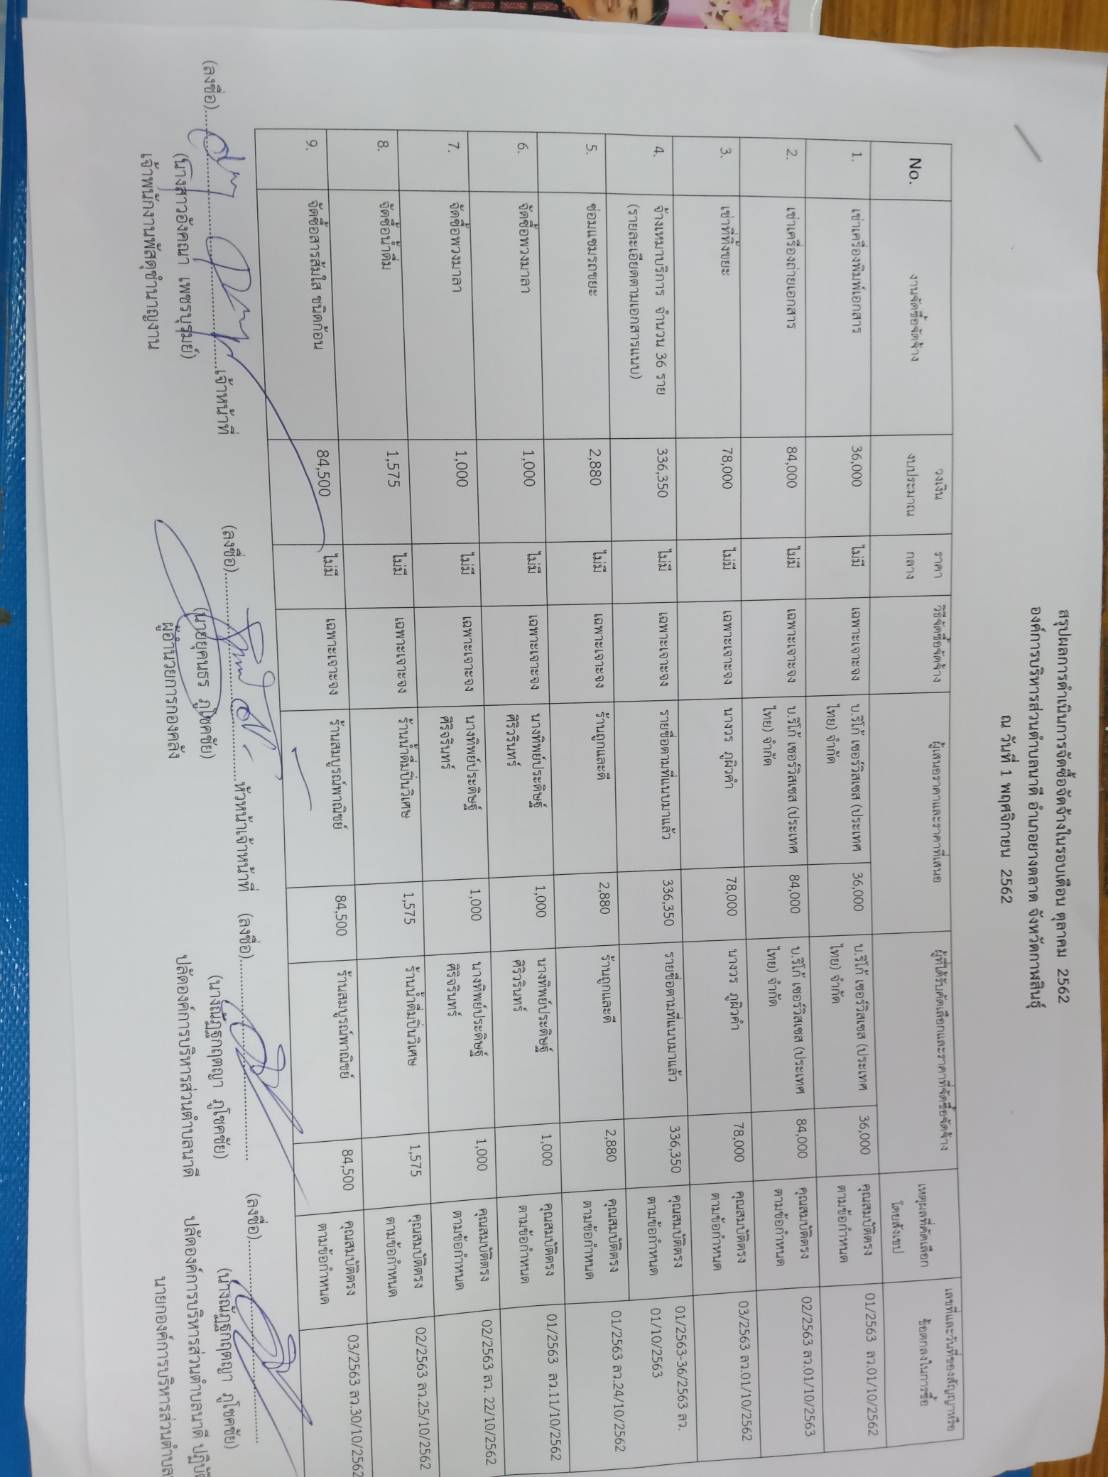 สรุปผลการดำเนินการจัดซื้อจัดจ้างในรอบเดือน ตุลาคม 2562
องค์การบริหารส่วนตำบลนาดี อำเภอยางตลาด จังหวัดกาฬสินธุ์
ณ วันที่ 1 พฤศจิกายน 2562
No. งานจัดซื้อจัดจ้าง วงเงิน งบประมาณ ราคา กลาง วิธีจัดซื้อจัดจ้าง ผู้เสนอราคาและราคาที่เสนอ ผู้ที่ได้รับคัดเลือกและราคาที่จัดซื้อจัดจ้าง เหตุผลที่คัดเลือก โดยสังเขป เลขที่และวันที่ของสัญญาหรือ ข้อตกลงในการซื้อ
1. เช่าเครื่องพิมพ์เอกสาร 36,000 ไม่มี เฉพาะเจาะจง บ.ริโก้ เซอร์วิสเซส (ประเทศ ไทย) จำกัด 36,000 บ.ริโก้ เซอร์วิสเซส (ประเทศ ไทย) จำกัด 36,000 คุณสมบัติตรง ตามข้อกำหนด 01/2563 ลว.01/10/2562
2. เช่าเครื่องถ่ายเอกสาร 84,000 ไม่มี เฉพาะเจาะจง บ.ริโก้ เซอร์วิสเซส (ประเทศ ไทย) จำกัด 84,000 บ.ริโก้ เซอร์วิสเซส (ประเทศ ไทย) จำกัด 84,000 คุณสมบัติตรง ตามข้อกำหนด 02/2563 ลว.01/10/2563
3. เช่าที่ทิ้งขยะ 78,000 ไม่มี เฉพาะเจาะจง นางวร ภูผิวคำ 78,000 นางวร ภูผิวคำ 78,000 คุณสมบัติตรง ตามข้อกำหนด 03/2563 ลว.01/10/2562
4. จ้างเหมาบริการ จำนวน 36 ราย (รายละเอียดตามเอกสารแนบ) 336,350 ไม่มี เฉพาะเจาะจง รายชื่อตามที่แนบมาแล้ว 336,350 รายชื่อตามที่แนบมาแล้ว 336,350 คุณสมบัติตรง ตามข้อกำหนด 01/2563-36/2563 ลว. 01/10/2563
5. ซ่อมแซมรถขยะ 2,880 ไม่มี เฉพาะเจาะจง ร้านถูกและดี 2,880 ร้านถูกและดี 2,880 คุณสมบัติตรง ตามข้อกำหนด 01/2563 ลว.24/10/2562
6. จัดซื้อพวงมาลา 1,000 ไม่มี เฉพาะเจาะจง นางทิพย์ประดิษฐ์ ศิริวรินทร์ 1,000 นางทิพย์ประดิษฐ์ ศิริวรินทร์ 1,000 คุณสมบัติตรง ตามข้อกำหนด 01/2563 ลว.11/10/2562
7. จัดซื้อพวงมาลา 1,000 ไม่มี เฉพาะเจาะจง นางทิพย์ประดิษฐ์ ศิริจรินทร์ 1,000 นางทิพย์ประดิษฐ์ ศิริจรินทร์ 1,000 คุณสมบัติตรง ตามข้อกำหนด 02/2563 ลว. 22/10/2562
8. จัดซื้อน้ำดื่ม 1,575 ไม่มี เฉพาะเจาะจง ร้านน้ำดื่มปิ่นวิเศษ 1,575 ร้านน้ำดื่มปิ่นวิเศษ 1,575 คุณสมบัติตรง ตามข้อกำหนด 02/2563 ลว.25/10/2562
9. จัดซื้อสารส้มใส ชนิดก้อน 84,500 ไม่มี เฉพาะเจาะจง ร้านสมบูรณ์พาณิชย์ 84,500 ร้านสมบูรณ์พาณิชย์ 84,500 คุณสมบัติตรง ตามข้อกำหนด 03/2563 ลว.30/10/2562
(ลงชื่อ)....................เจ้าหน้าที่
(นางสาวอังคณา เพชรบูรมย์)
เจ้าพนักงานพัสดุชำนาญงาน
(ลงชื่อ)....................หัวหน้าเจ้าหน้าที่
(นายยุคนธร ภูโชคชัย)
ผู้อำนวยการกองคลัง
(ลงชื่อ)....................
(นางณัฏฐกฤตญา ภูโชคชัย)
ปลัดองค์การบริหารส่วนตำบลนาดี
(ลงชื่อ)....................
(นางณัฏฐกฤตญา ภูโชคชัย)
ปลัดองค์การบริหารส่วนตำบลนาดี
นายกองค์การบริหารส่วนตำบล